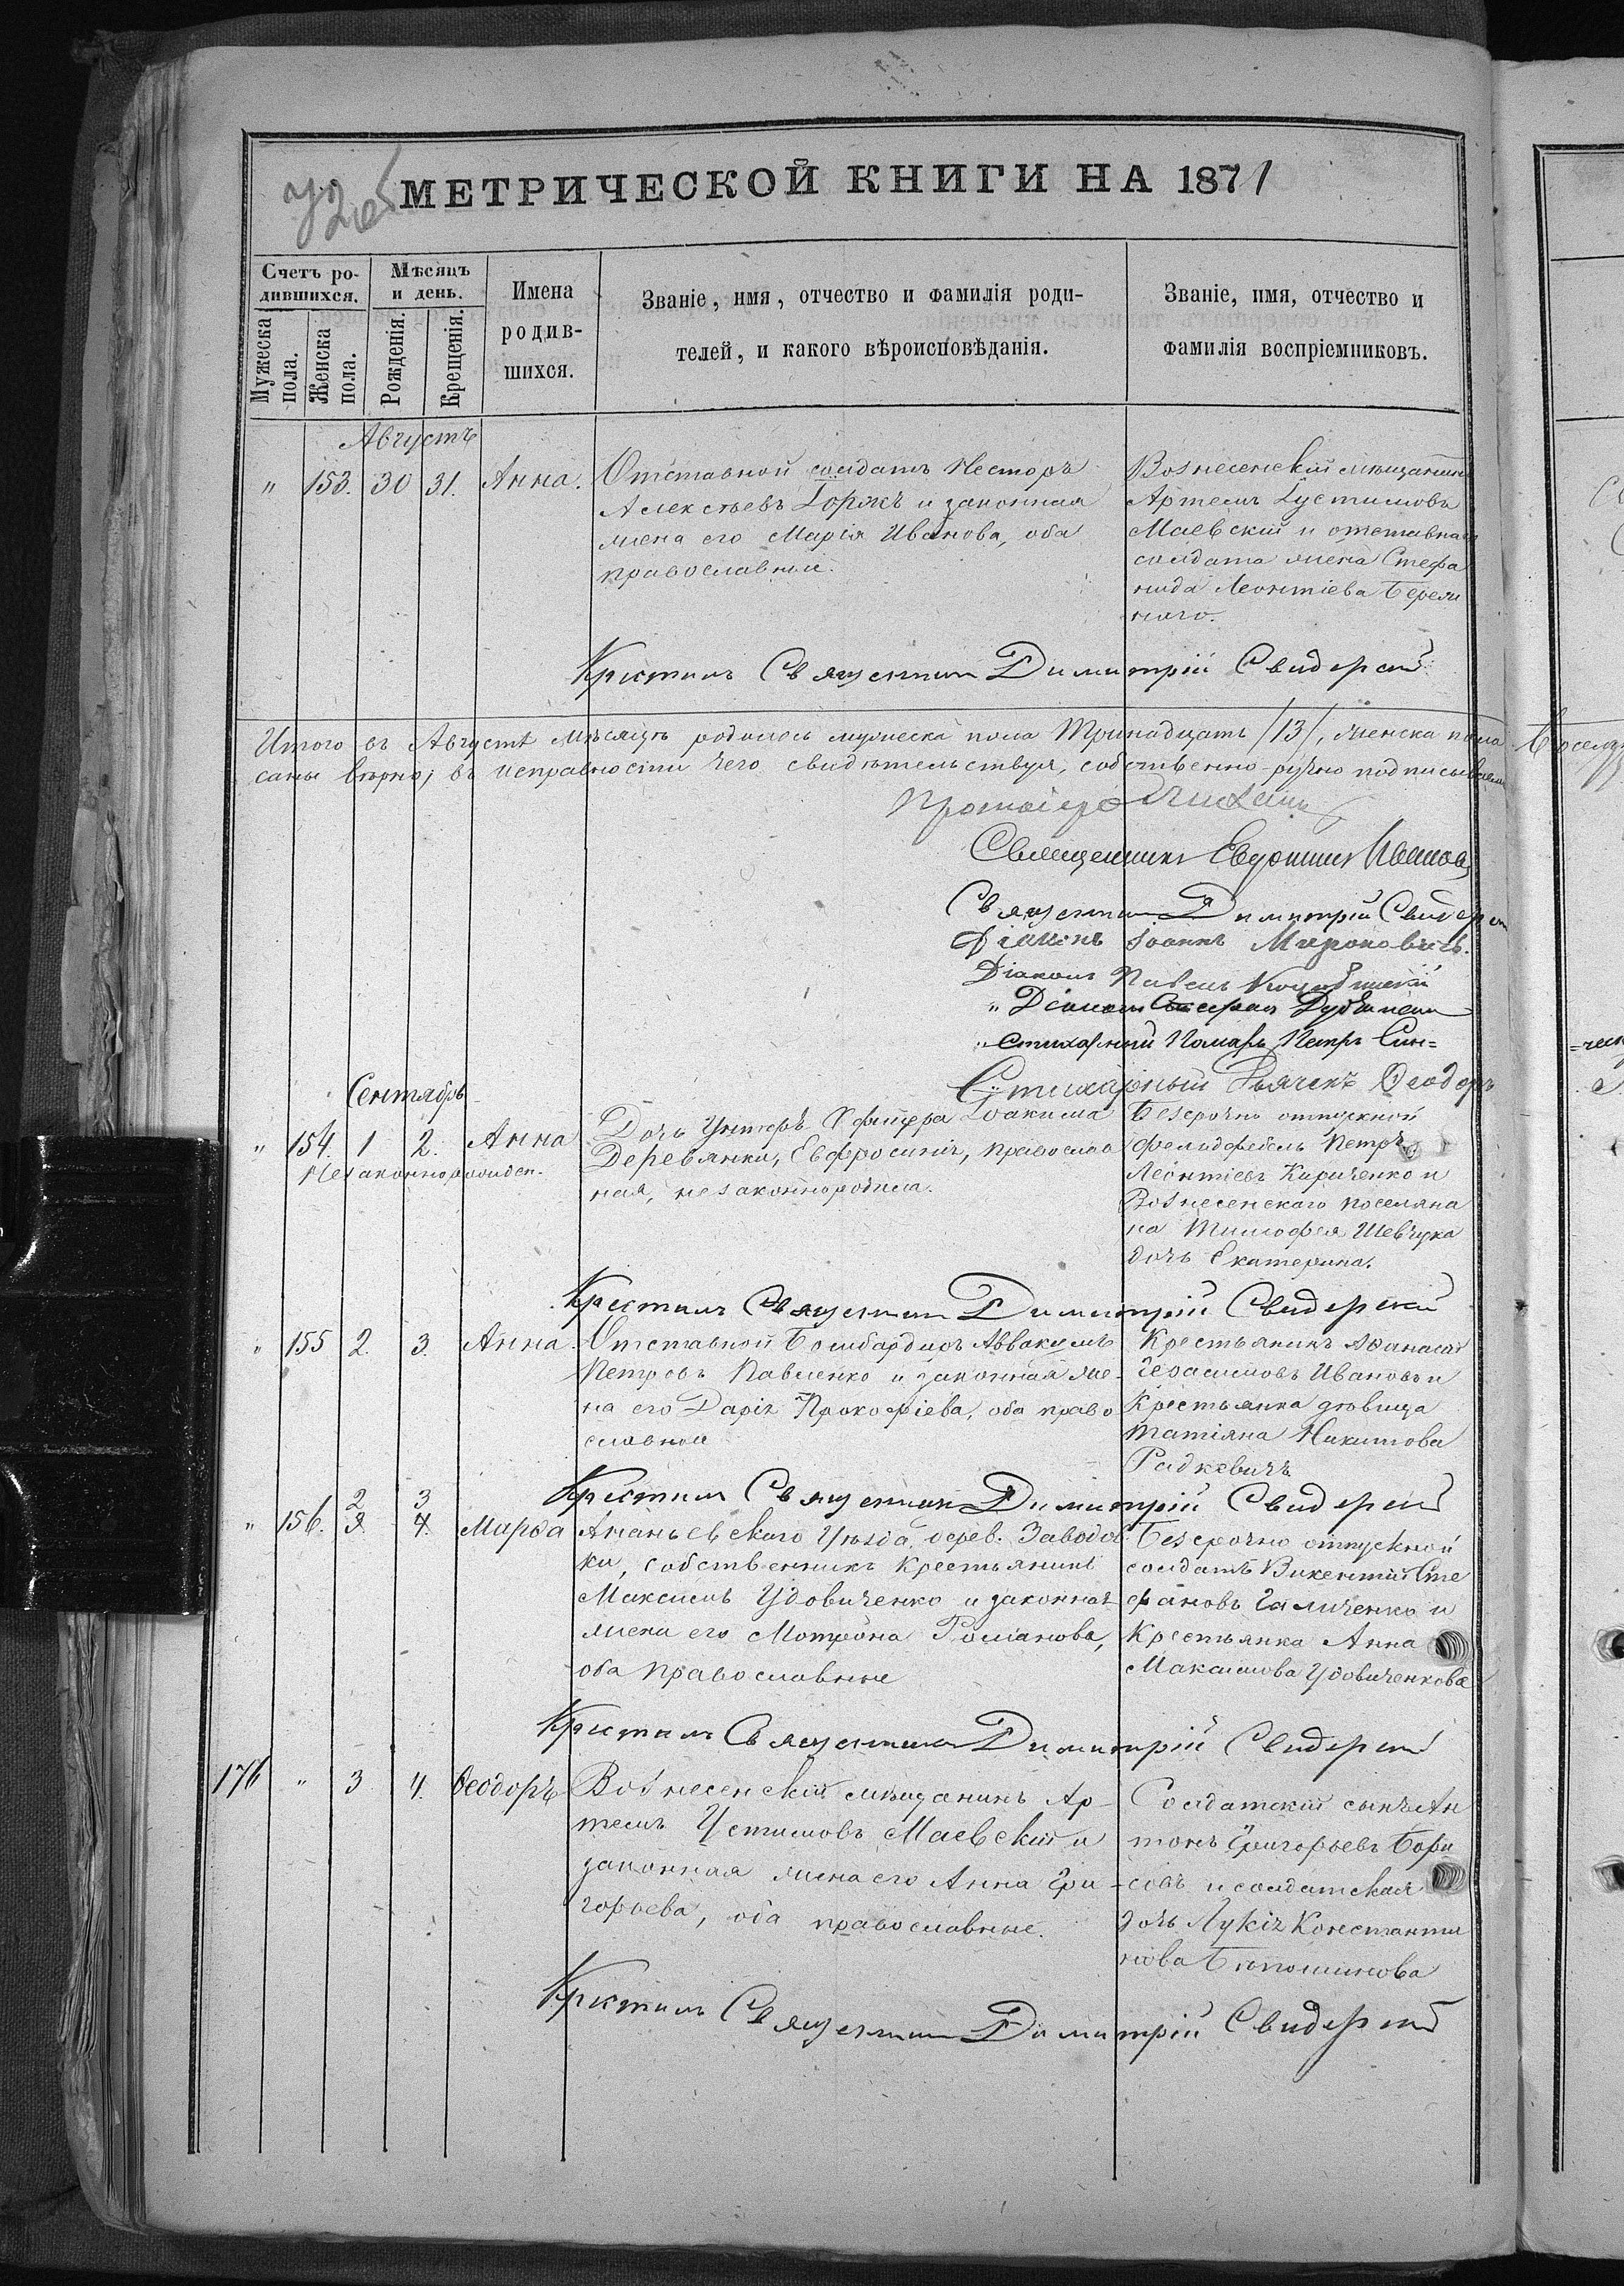 МЕТРИЧЕСКОЙ КНИГИ НА 1871
Счетъ ро-
дившихся.
Мѣсяцъ
и день.
Имена
родив-
шихся.
Званіе, имя, отчество и фамилія роди-
телей, и какого вѣроисповѣданія.
Званіе, имя, отчество и
фамилія воспріємниковъ.
Мужеска
пола.
Женска
пола.
Рожденія.
Крещенія.
Августъ
" 153. 30 31. Анна.
Отставной солдатъ Несторъ
Алексѣевъ и законная
жена его Марія Иванова, оба
православные.
Вознесенскій мѣщанинъ
Артемъ Густимовъ
Маевскій и отставнаго
солдата жена Стефа
нида Леонтіева Бережи
наго.
Крестилъ Священникъ Димитрій Свидерскій
Итого въ Августѣ мѣсяцѣ родилось мужеска пола Тринадцать /13/, женска пола
саны вѣрно; въ исправности чего свидѣтельствуя, собственно-ручно подписываемъ
Протоіерей
Священникъ Иванов
Священникъ Димитрій Свидерск
Діаконъ Іоаннъ Мироновичъ.
Діаконъ Павелъ
" Діаконъ
Стихарный Пономарь Петръ Син=
Стихарный Дьячекъ Ѳеодоръ
Сентябрь
" 154. 1 2. Анна
Незаконнорожден.
Дочь Унтеръ Офицера Іоакима
Деревянки, Евфросинія, православ
ная, незаконнородила.
Безсрочно отпускной
фельдфебель Петръ
Леонтіевъ Кириченко и
Вознесенскаго поселяна
на Тимофея Шевчука
дочь Екатерина.
Крестилъ Священникъ Димитрій Свидерскій
" 155 2. 3. Анна.
Отставной Бомбардиръ Аввакумъ
Петровъ Павленко и законная же-
на его Дарія Прокофіева, оба право
славные
Крестьянинъ Аѳанасій
Герасимовъ Ивановъ и
Крестьянка дѣвица
Татіяна Никитова
Радкевичъ
Крестилъ Священникъ Димитрій Свидерскій
2 3
" 156. 3 4. Марѳа
Ананьевскаго Уѣзда, дерев. Заводов
ки, собственникъ крестьянинъ
Максимъ Удовиченко и законная
жена его Мотрона Романова,
оба православные
Безсрочно отпускной
солдатъ Викентій Сте
фановъ Галиченко и
Крестьянка Анна
Максимова Удовиченкова
Крестилъ Священникъ Димитрій Свидерскій
176 " 3 4. Ѳеодоръ
Вознесенскій мѣщанинъ Ар-
темъ Устимовъ Маевскій и
законная жена его Анна Гри-
горьева, оба православные.
Солдатскій сынъ Ан
тонъ Григорьевъ Бори
совъ и солдатская
дочь Лукія Константи
нова
Крестилъ Священникъ Димитрій Свидерскій